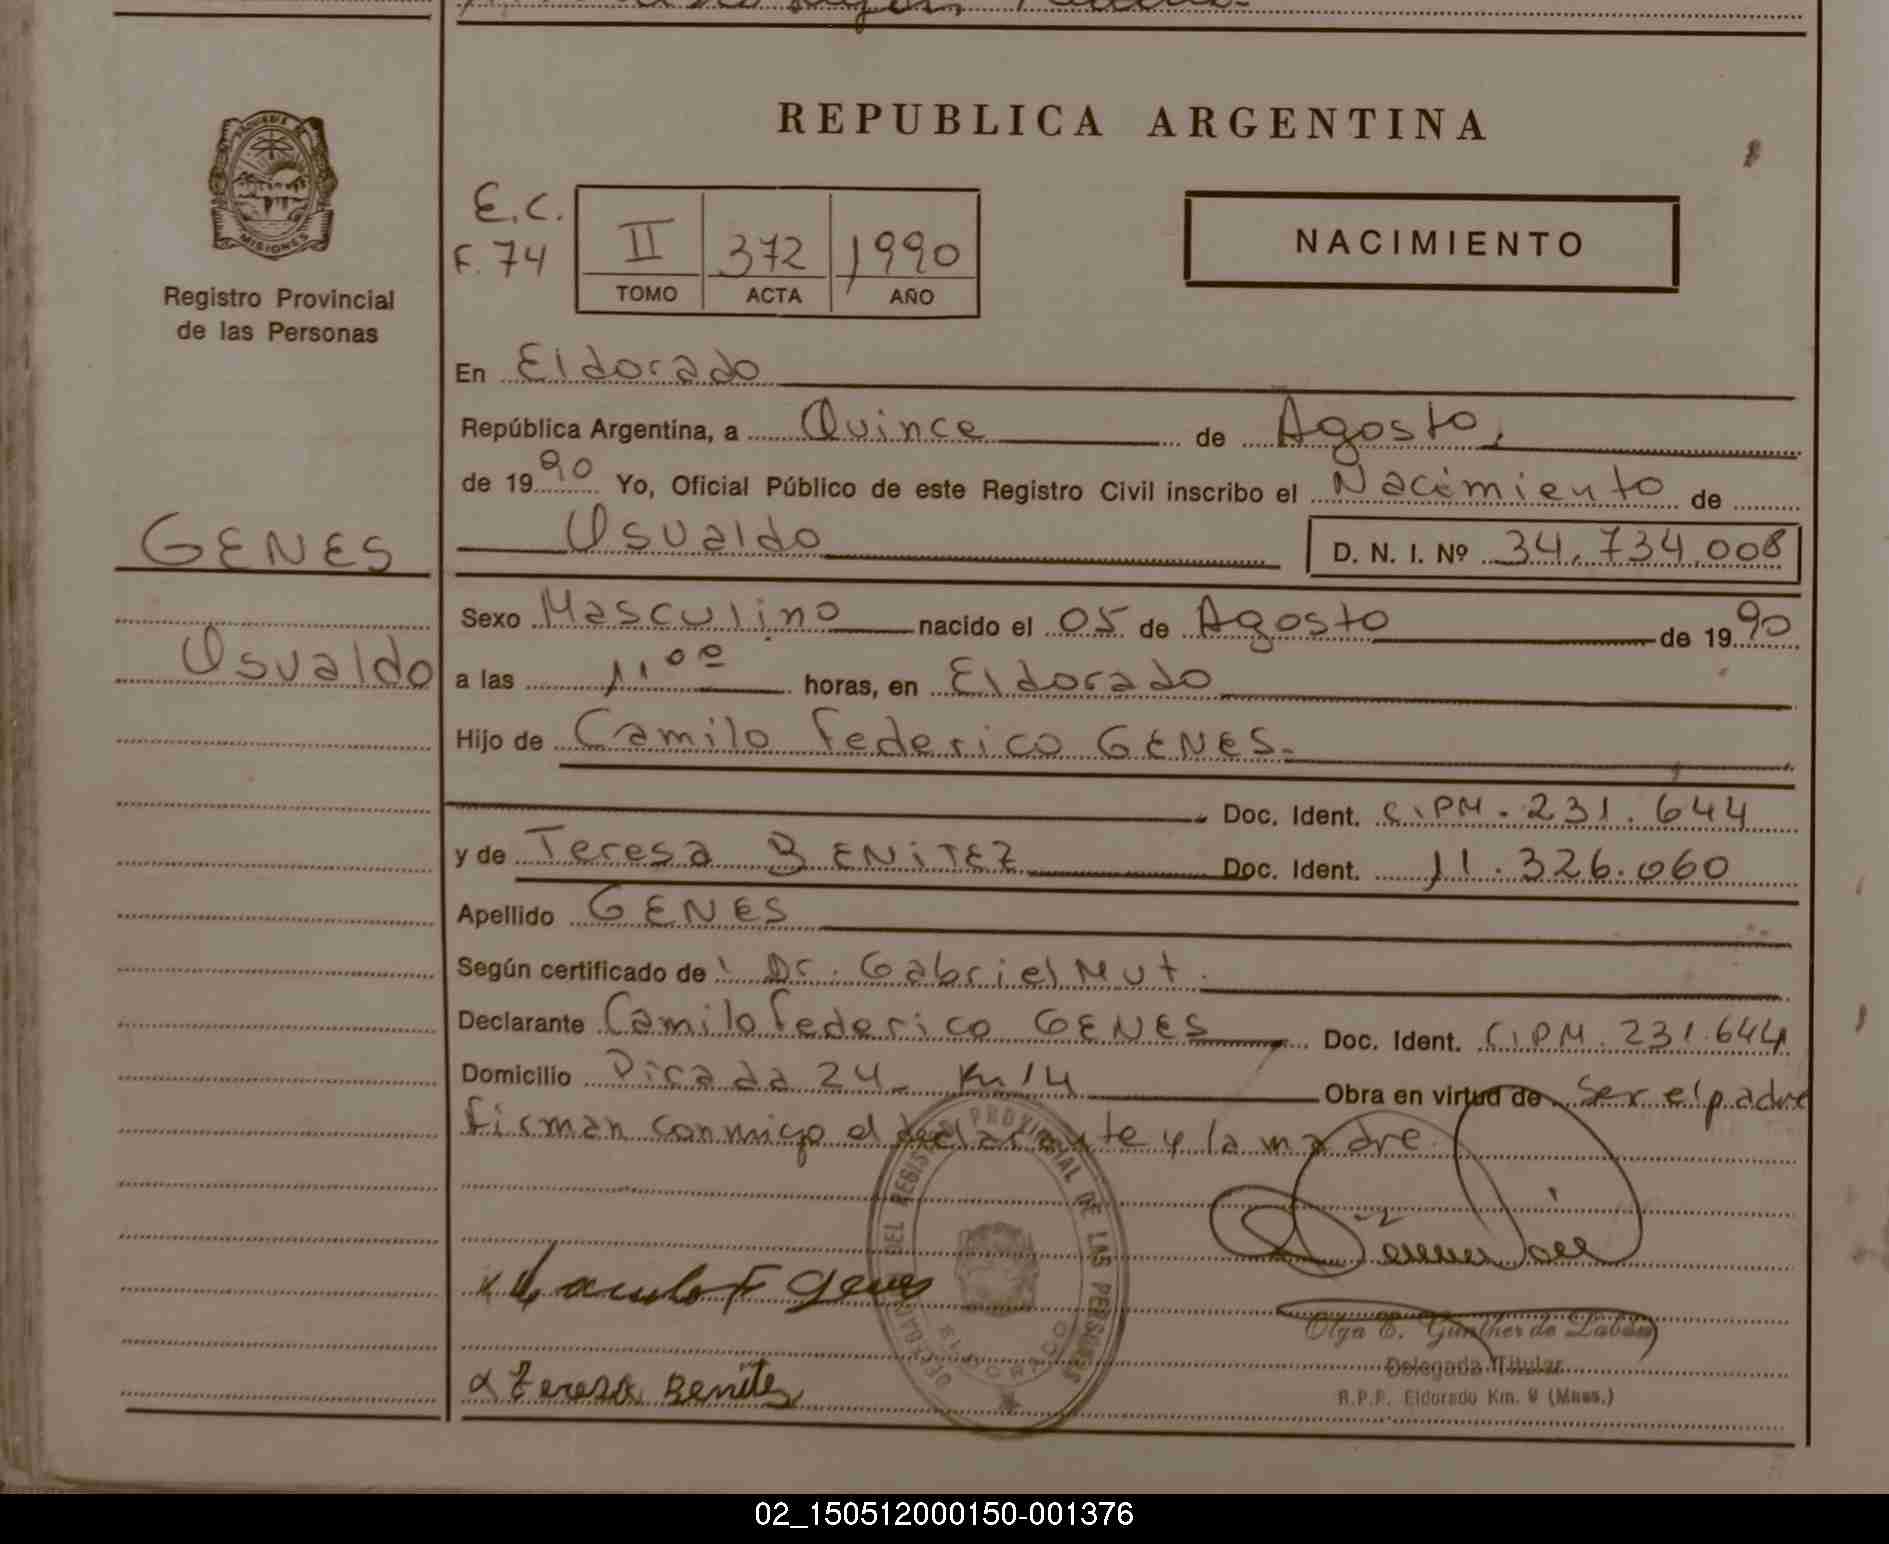 REPUBLICA ARGENTINA
PROVINCIA DE
MISIONES
Registro Provincial
de las Personas
E.C.
F. 74
II 372 1990
TOMO ACTA AÑO
NACIMIENTO
En Eldorado
República Argentina, a Quince de Agosto,
de 1990 Yo, Oficial Público de este Registro Civil inscribo el Nacimiento de
GENES
Osvaldo D. N. I. Nº 34.734.008
Sexo Masculino nacido el 05 de Agosto de 1990
Osvaldo
a las 11.00 horas, en Eldorado
Hijo de Camilo Federico GENES.
Doc. Ident. C.I.PM. 231.644
y de Teresa BENITEZ Doc. Ident. 11.326.060
Apellido GENES
Según certificado de: Dr. Gabriel Mut.
Declarante Camilo Federico GENES Doc. Ident. C.I.PM. 231.644
Domicilio Picada 24 - Km 14 Obra en virtud de Ser el padre
firman conmigo el declarante y la madre.
DEL REGISTRO PROVINCIAL DE LAS PERSONAS
ELDORADO
Camilo F Genes
Olga E. Günther de Labán
Delegada Titular
R.P.P. Eldorado Km. 9 (Mnes.)
x Teresa Benitez
02_150512000150-001376